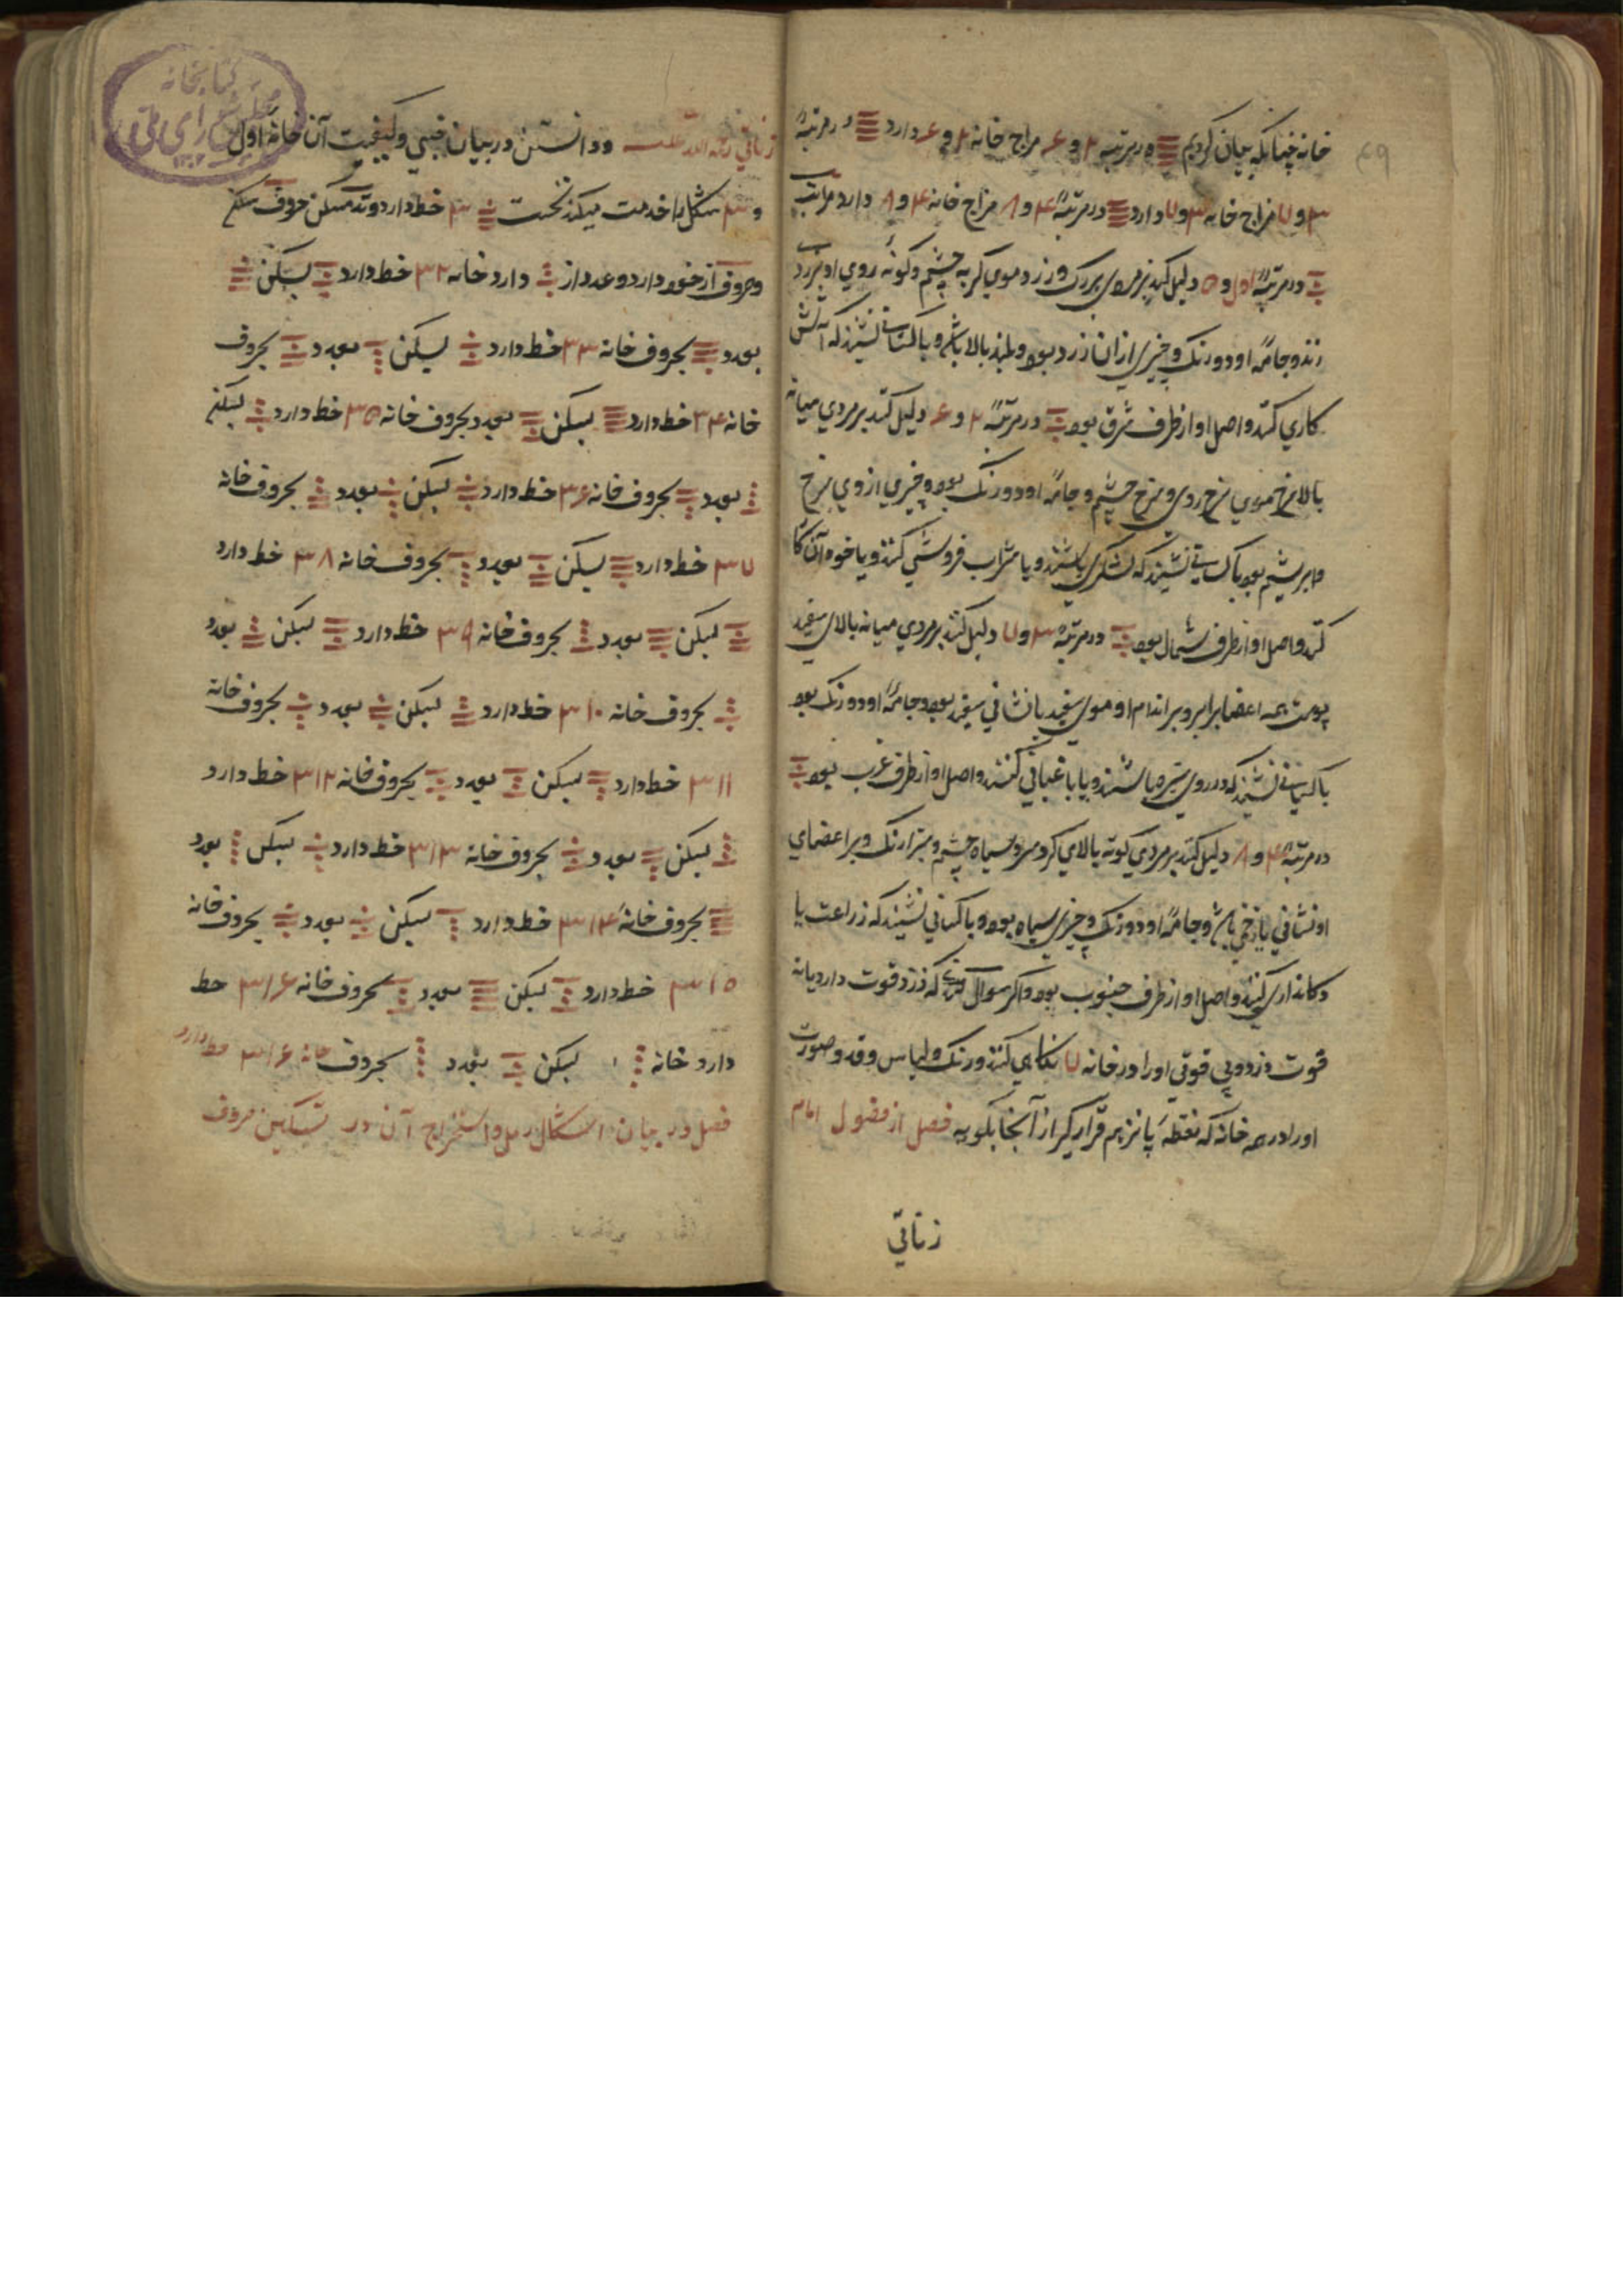 خانه چنانکه بیان کردیم در مرتبه ۲ و ۶ مزاج خانه ۲ و ۶ دارد در مرتبهٔ
۳ و ۷ مزاج خانه ۳ و ۷ دارد در مرتبهٔ ۴ و ۸ مزاج خانه ۴ و ۸ دارد مراتب
در مرتبهٔ اول و ۵ دلیل کند بر مردی بزرگ و زرد موی گربه چشم و گونهٔ روی او بزردی
زند و جامهٔ او دو رنگ و چیزی از آن زرد بود و بلند بالا باشد و با کسانی نشیند که آتش
کاری کنند و اصل او از طرف شرق بود در مرتبهٔ ۲ و ۶ دلیل کند بر مردی میانه
بالا سرخ موی سرخ روی و سرخ چشم و جامهٔ او دو رنگ بود و چیزی از وی سرخ
و ابریشم بود با کسانی نشیند که لشکری باشند و یا شراب فروشی کنند و یا خود آن کا
کند و اصل او از طرف شمال بود در مرتبهٔ ۳ و ۷ دلیل کند بر مردی میانه بالای سفید
پوست همه اعضا برابر و بر اندام او موی سفید یا نشانی سفید بود و جامهٔ او دو رنگ بود
با کسانی نشیند که در روی سبزه باشند و یا باغبانی کنند و اصل او از طرف غرب بود
در مرتبهٔ ۴ و ۸ دلیل کند بر مردی کوته بالای گرد سر و سیاه چشم و سبزارنگ و بر اعضای
او نشانی یا زخمی باشد و جامهٔ او دو رنگ و چیزی سیاه بود و با کسانی نشیند که زراعت یا
دکانداری کنند و اصل او از طرف جنوب بود و اگر سوال کنند که دزد قوت دارد یا نه
قوت دزد و بی قوتی او را در خانه ۷ نگاهی کنند و رنگ و لباس و قد و صورت
او را در هر خانه که نقطهٔ پانزدهم قرار گیرد از آنجا بگوید فصل از فصول امام
زناتی
زناتی رحمة الله علیه ودانستن در بیان خبی و کیفیت آن خانهٔ اول
و ۳ شکل را خدمت میکند نخست ۳ خط دارد وتد مسکن حروف سکن
و حروف از خود دارد و عدد از دارد خانه ۳۲ خط دارد بسکن
بعدد بحروف خانه ۳۳ خط دارد بسکن بعدد بحروف
خانه ۳۴ خط دارد بسکن بعدد بحروف خانه ۳۵ خط دارد بسکن
بعدد بحروف خانه ۳۶ خط دارد بسکن بعدد بحروف خانه
۳۷ خط دارد بسکن بعدد بحروف خانه ۳۸ خط دارد
بسکن بعدد بحروف خانه ۳۹ خط دارد بسکن بعدد
بحروف خانه ۳۱۰ خط دارد بسکن بعدد بحروف خانه
۳۱۱ خط دارد بسکن بعدد بحروف خانه ۳۱۲ خط دارد
بسکن بعدد بحروف خانه ۳۱۳ خط دارد بسکن بعدد
بحروف خانهٔ ۳۱۴ خط دارد بسکن بعدد بحروف خانه
۳۱۵ خط دارد بسکن بعدد بحروف خانه ۳۱۶ خط
دارد خانه بسکن بعدد بحروف خانه ۳۱۶ خط دارد
فصل در بیان اشکال رمل و استخراج آن در تسکین حروف
کتابخانه
مجلس شورای ملی